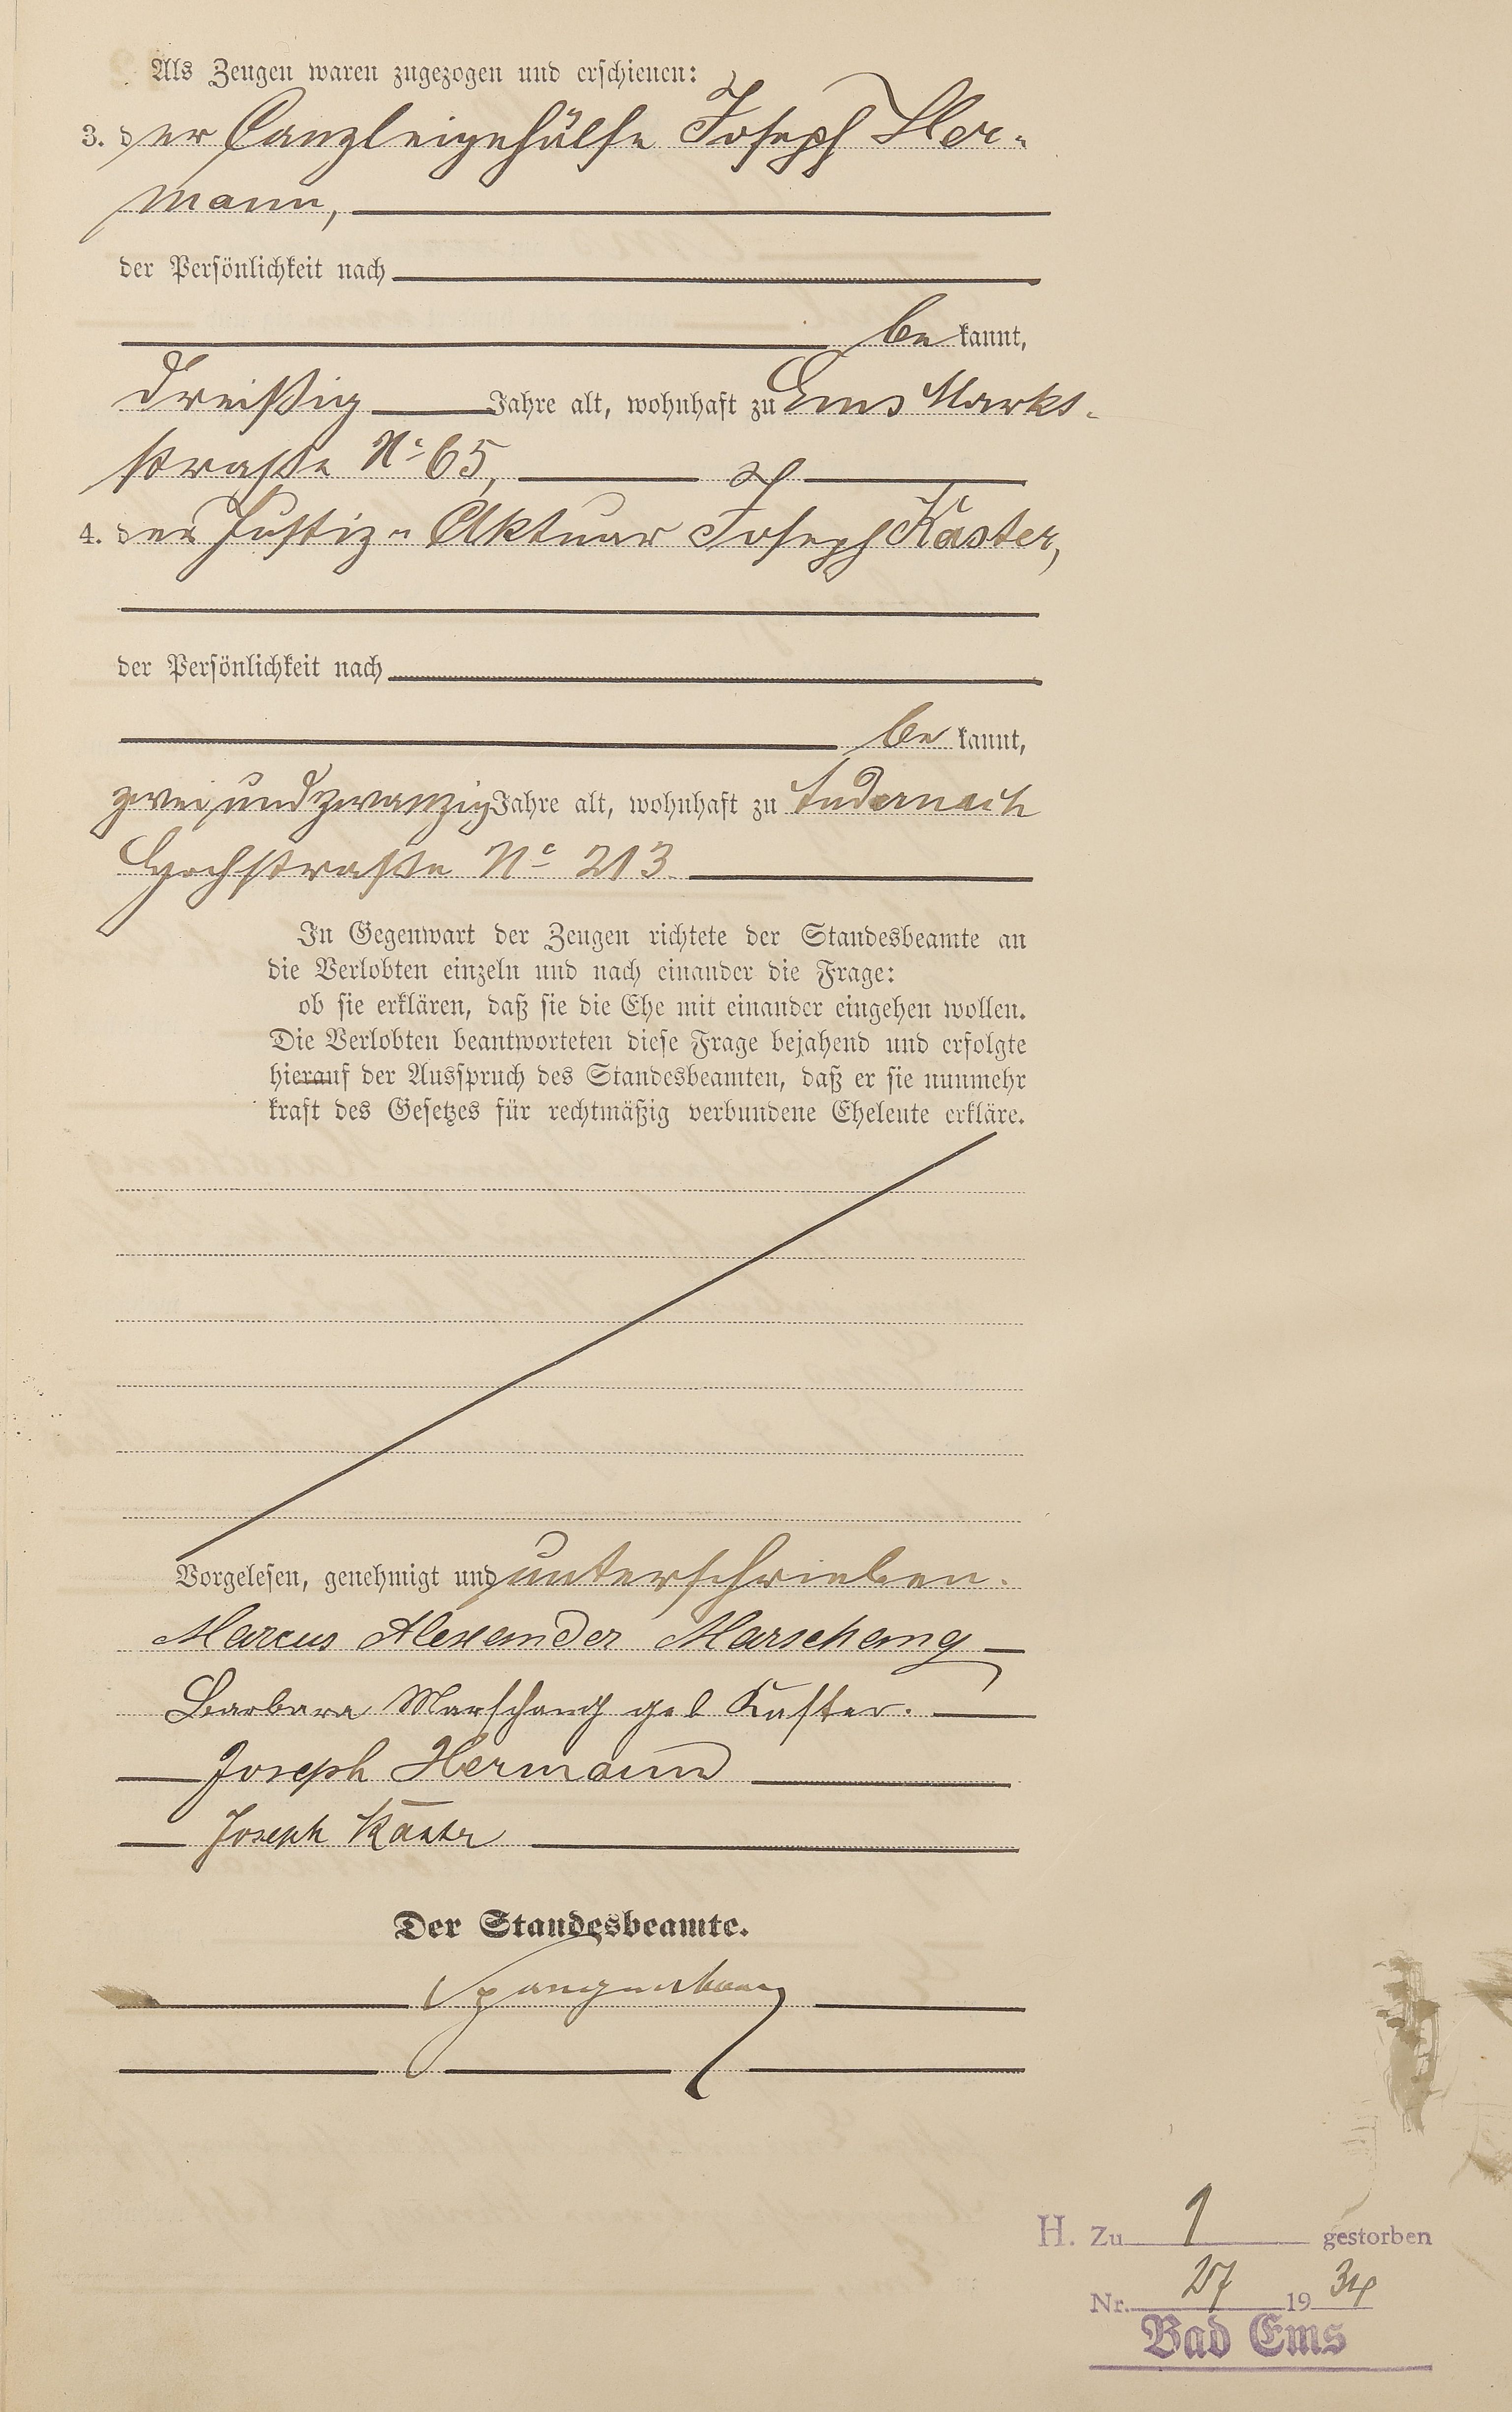 Als Zeugen waren zugezogen und erschienen:
3. der Canzleigehülfe Joseph Her-
mann,
der Persönlichkeit nach
be kannt,
dreißig Jahre alt, wohnhaft zu Ems Markt-
straße No 65,
4. der Justiz-Aktuar Joseph Kaster,
der Persönlichkeit nach
be kannt,
zwei und zwanzig Jahre alt, wohnhaft zu Andernach
Hochstraße No 213
In Gegenwart der Zeugen richtete der Standesbeamte an
die Verlobten einzeln und nach einander die Frage:
ob sie erklären, daß sie die Ehe mit einander eingehen wollen.
Die Verlobten beantworteten diese Frage bejahend und erfolgte
hierauf der Ausspruch des Standesbeamten, daß er sie nunmehr
kraft des Gesetzes für rechtmäßig verbundene Eheleute erkläre.
Vorgelesen, genehmigt und unterschrieben.
Marcus Alexander Marschang
Barbara Marschang geb Kaster.
Joseph Hermann
Joseph Kaster
Der Standesbeamte.
H. Zu 1 gestorben
Nr. 27 19 34
Bad Ems